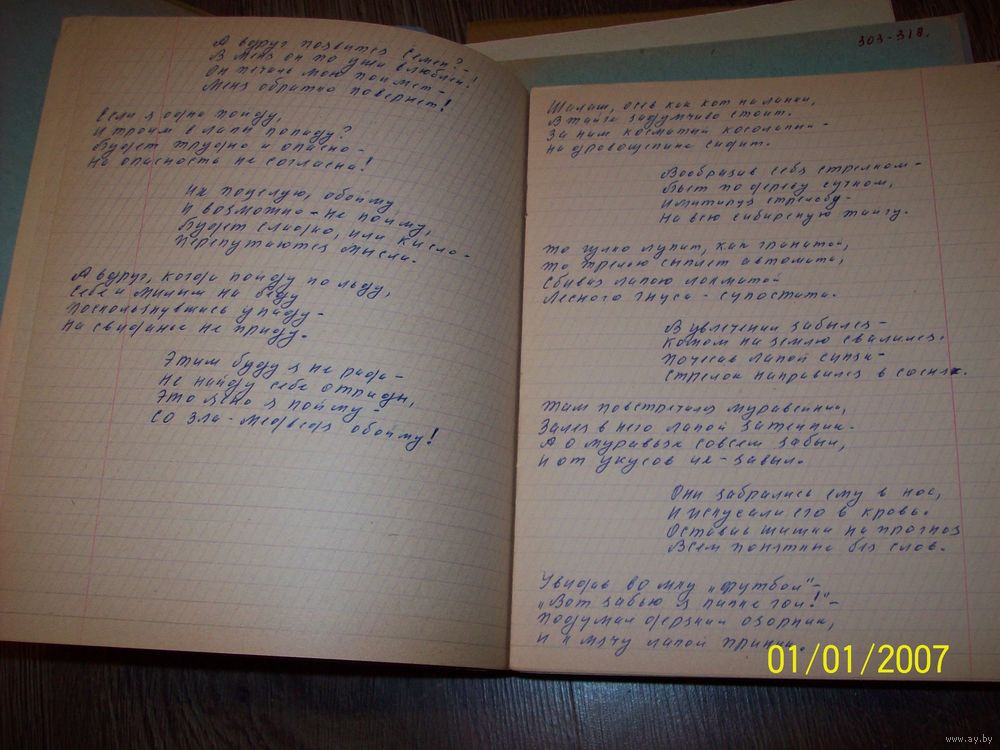 А вдруг появится Семен? -
В меня он по уши влюблен!
Он печаль мою поймет -
Меня обратно повернет!
Если я одна пойду,
И троим в лапы попаду?
Будет трудно и опасно -
На опасность не согласна!
Их поцелую, обойму
И возможно - не пойму,
Будет сладко, или кисло -
Перепутаются мысли.
А вдруг, когда пойду по льду,
Себе и милым на беду
Поскользнувшись упаду -
На свиданье не приду.
Этим буду я не рада -
Не найду себе отрады,
Это ясно я пойму -
Со зла - медведя обойму!
303-318.
Шалаш, осев как кот на лапки,
В тайге задумчиво стоит.
За ним косматый косолапый -
На дровощепине сидит.
Вообразив себя стрелком -
Бьет по дереву сучком,
Имитируя стрельбу -
На всю сибирскую тайгу.
То гулко лупит, как гранатой,
То трелью сыплет автомата,
Сбивая лапою лохматой
Лесного гнуса - супостата.
В увлечении забылся -
Комом на землю свалился.
Почесав лапой синяк -
Стрелок направился в сосняк.
Там повстречался муравейник,
Залез в него лапой затейник.
А о муравьях совсем забыл,
И от укусов их - завыл.
Они забрались ему в нос,
И искусали его в кровь.
Оставив шишки на прогноз
Всем понятный без слов.
Увидав во мху „футбол" -
„Вот забью я папке гол!" -
Подумал дерзкий озорник,
И к мячу лапой приник.
01/01/2007
www.ay.by